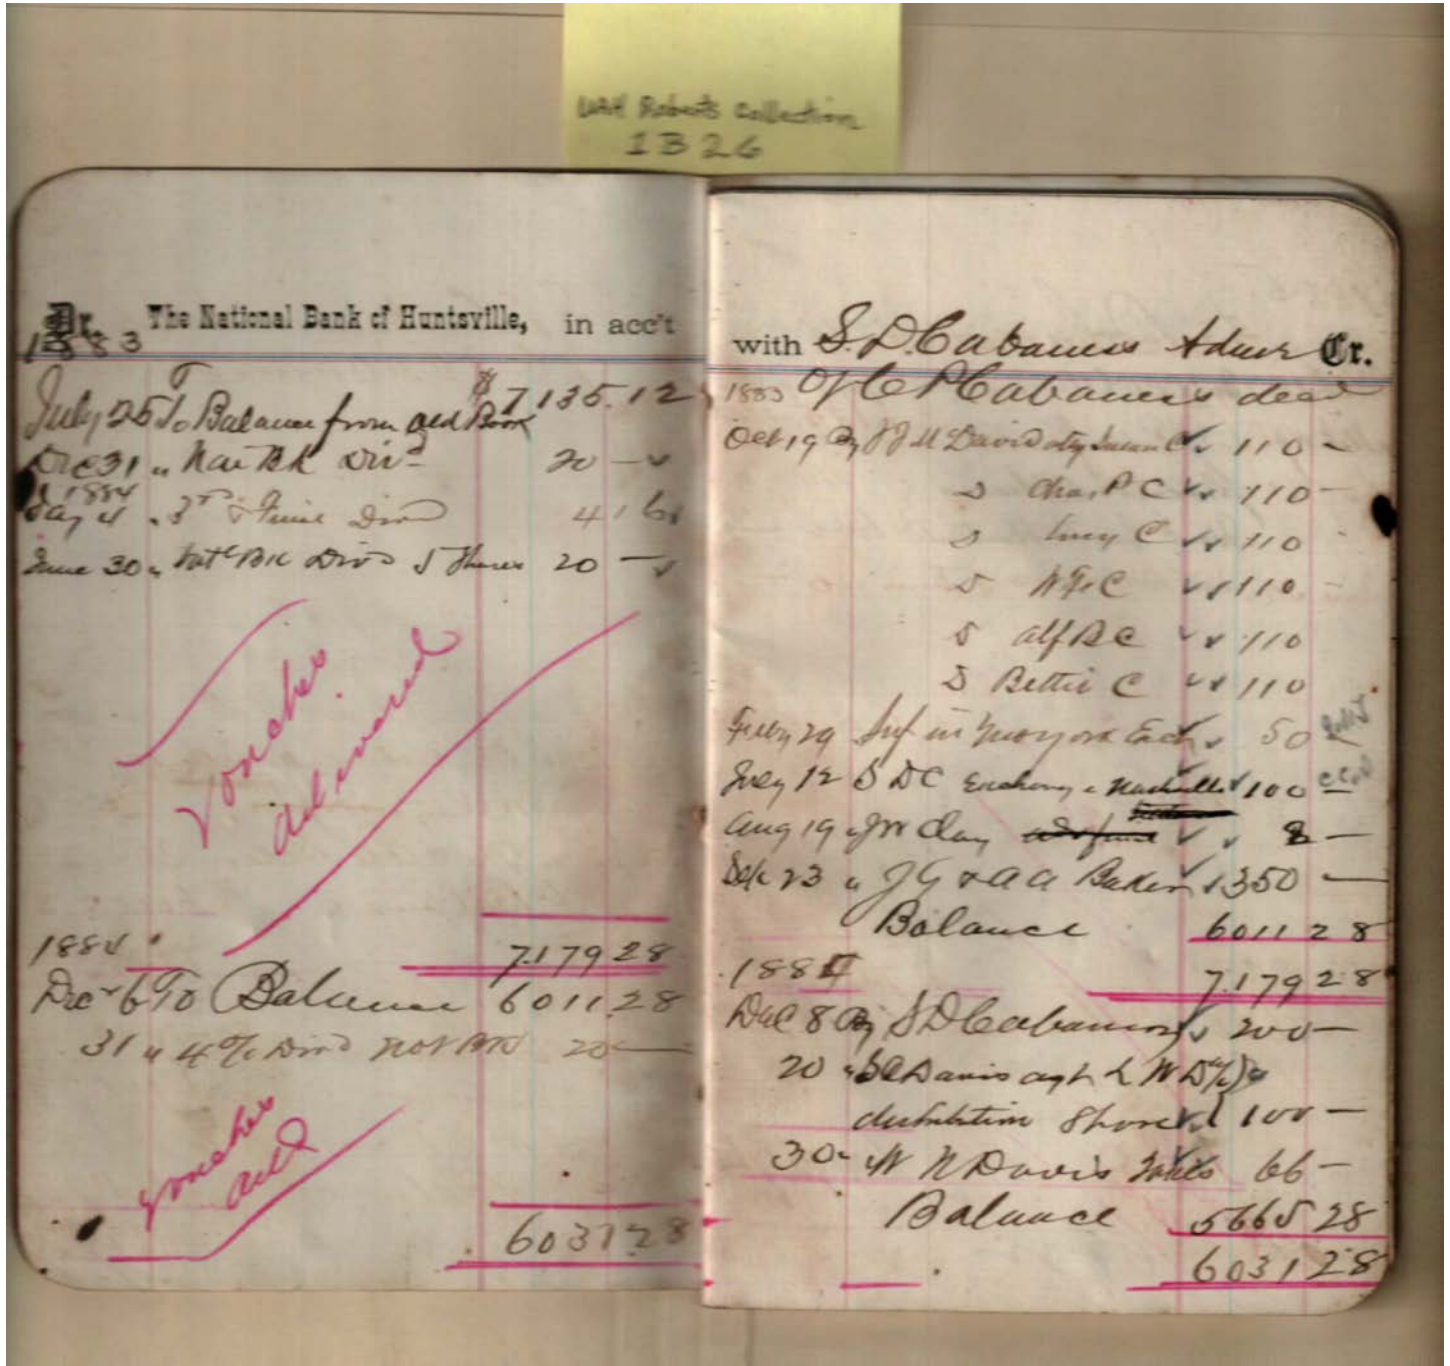 UAH Roberts Collection
1326
Dr. The National Bank of Huntsville, in acc't
1883
July 25 To Balance from old Book $7135.12
Dec 31 " Nat Bk Divd 20 —
1884
4 " 3rd & Final Divd 4 16
June 30 " Natl Bk Divd 5 Shares 20 —
Vouches
delivered
1884
7179 28
Dec 6 To Balance 6011.28
31 " 4% Divd Nat Bk 20 —
Vouches
deld
6031 28
with S. D. Cabaness Admr Cr.
1883 of C P Cabaness decd
Oct 19 By J J M David atty Susan C 110 —
D Chas P C 110 —
D Lucy C 110
D W F C 110 —
D Alf B C 110
D Bettie C 110
Feby 29 in 50
July 12 S D C Exchange Nashville 100 —
Aug 19 " J W Clay 8 —
23 " J G & A A Baker 350 —
Balance 6011 28
1884
7179 28
Dec 8 By S D Cabaness 200 —
20 " Davis agt L W D
distribution Share 100 —
30 " W N Davis 66 —
Balance 5665 28
6031 28